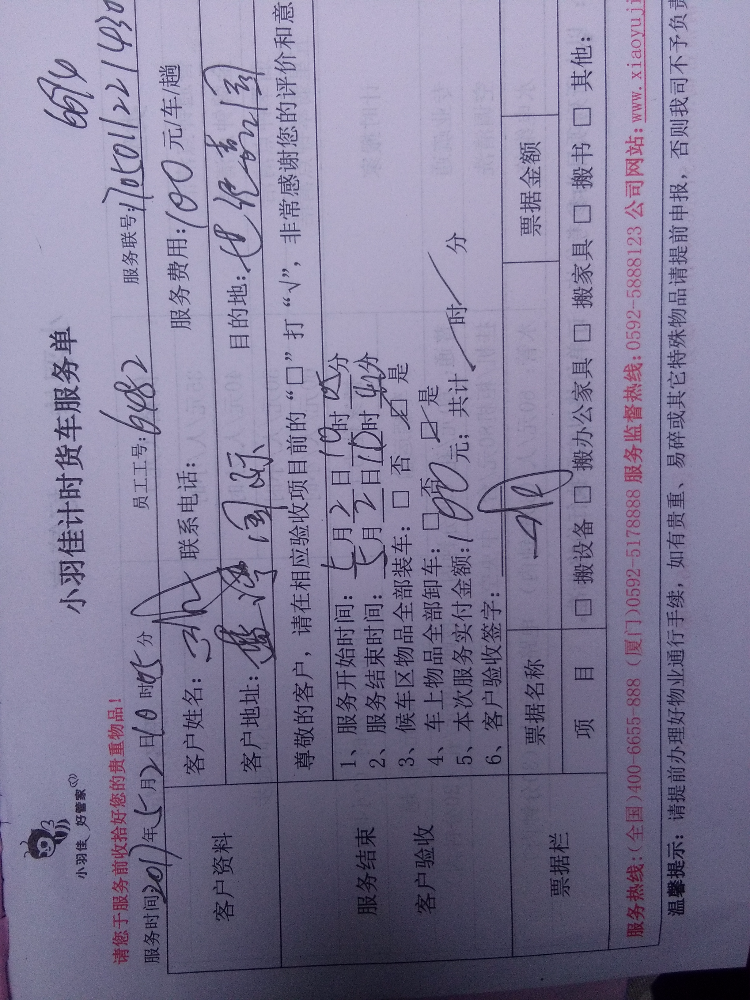 小羽佳 好管家
小羽佳计时货车服务单
6674
请您于服务前收拾好您的贵重物品！
服务时间2017年5月2日10时05分 员工工号：6482 服务联号：1705011221430
客户资料
客户姓名： 联系电话： 服务费用：100元/车/趟
客户地址： 国际 目的地：
尊敬的客户，请在相应验收项目前的“□”打“√”，非常感谢您的评价和意
服务结束
客户验收
1、服务开始时间：5月2日10时05分
2、服务结束时间：5月2日10时42分
3、候车区物品全部装车：□否 ☑是
4、车上物品全部卸车：□否 ☑是
5、本次服务实付金额：100元；共计 时 分
6、客户验收签字：
票据栏
票据名称 票据金额
项 目 □搬设备 □搬办公家具 □搬家具 □搬书 □其他：
服务热线：（全国）400-6655-888（厦门）0592-5178888 服务监督热线：0592-5888123 公司网站：www.xiaoyuji
温馨提示：请提前办理好物业通行手续，如有贵重、易碎或其它特殊物品请提前申报，否则我司不予负责